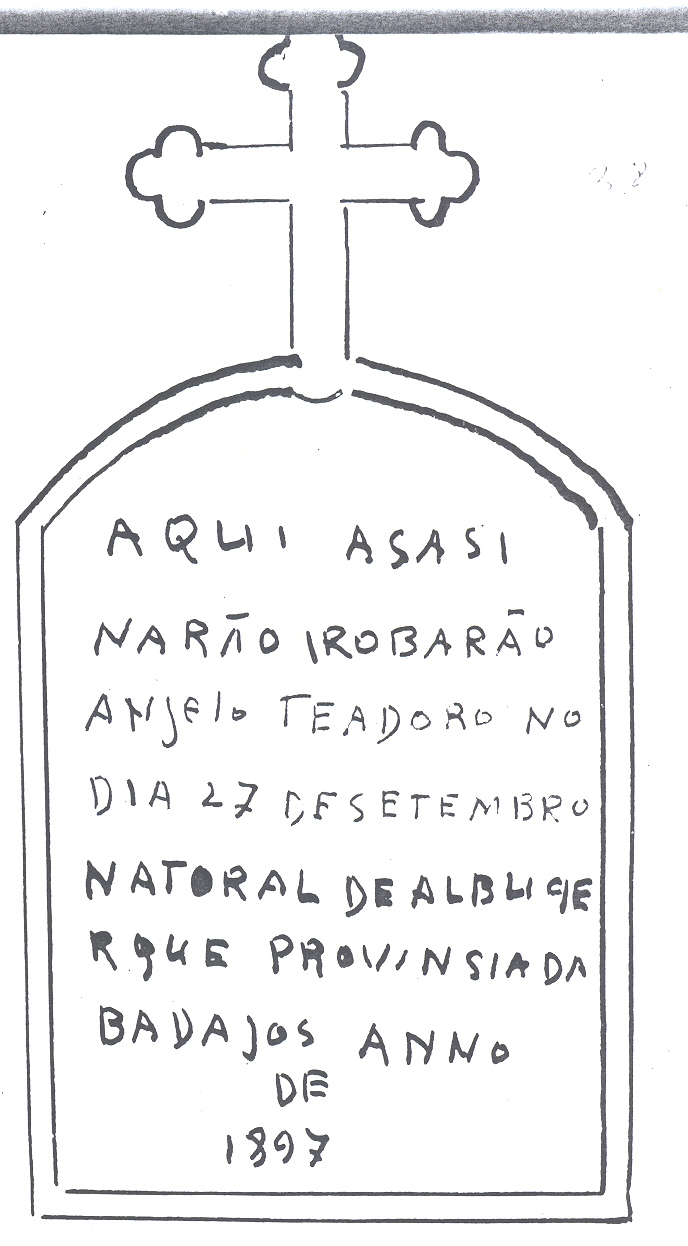 AQUI ASASI
NARÃO IROBARÃO
ANJElo TEADORO NO
DIA 27 DESETEMBRO
NATORAL DE ALBUQE
RQUE PROVINSIA DA
BADAJOS ANNO
DE
1897